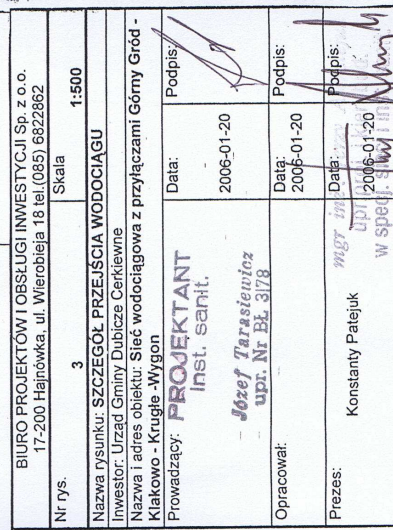 BIURO PROJEKTÓW I OBSŁUGI INWESTYCJI Sp. z o.o.
17-200 Hajnówka, ul. Wierobieja 18 tel.(085) 6822862
Nr rys. 3 Skala 1:500
Nazwa rysunku: SZCZEGÓŁ PRZEJŚCIA WODOCIĄGU
Inwestor: Urząd Gminy Dubicze Cerkiewne
Nazwa i adres obiektu: Sieć wodociągowa z przyłączami Górny Gród -
Klakowo - Krugłe -Wygon
Prowadzący: PROJEKTANT
Inst. sanit.
Józef Tarasiewicz
upr. Nr BŁ 3178
Data:
2006-01-20
Podpis:
Opracował:
Data:
2006-01-20
Podpis:
Prezes:
Konstanty Patejuk
mgr
w specj.
Data:
2006-01-20
Podpis: